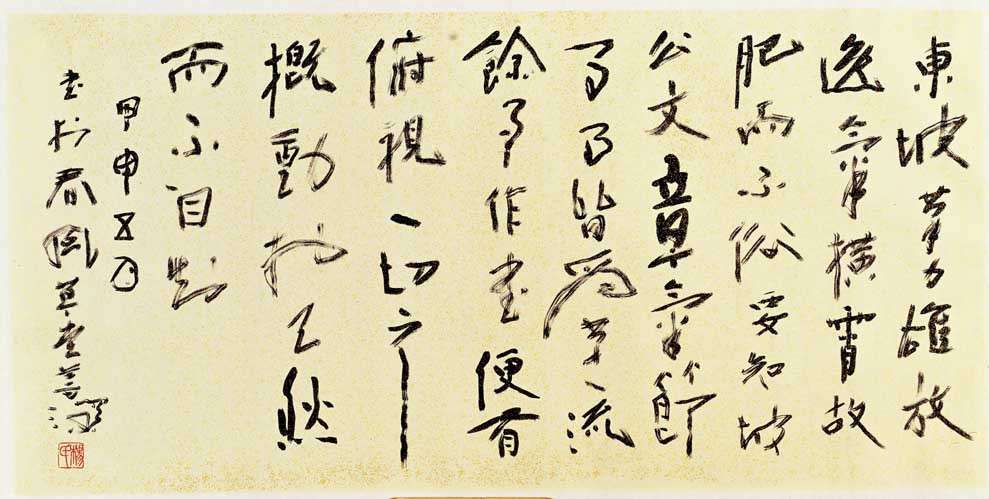 東坡筆力雄放
逸氣橫霄故
肥而不俗要知坡
公文章氣節
事事皆為第一流
餘事作書便有
俯視一切之
概動於天然
而不自知
甲申五月
書於春風草堂善深